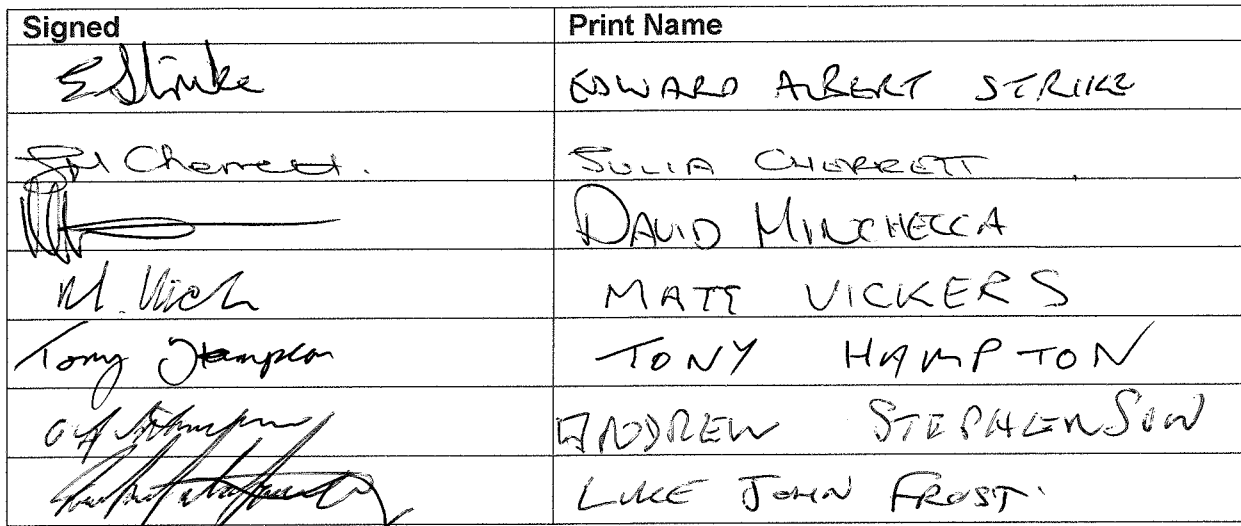 Signed Print Name
E Strike EDWARD ALBERT STRIKE
Cherrett. JULIA CHERRETT
DAVID MINCHELLA
M. MATT VICKERS
Tony Hampton TONY HAMPTON
ANDREW STEPHENSON
LUKE JOHN FROST.